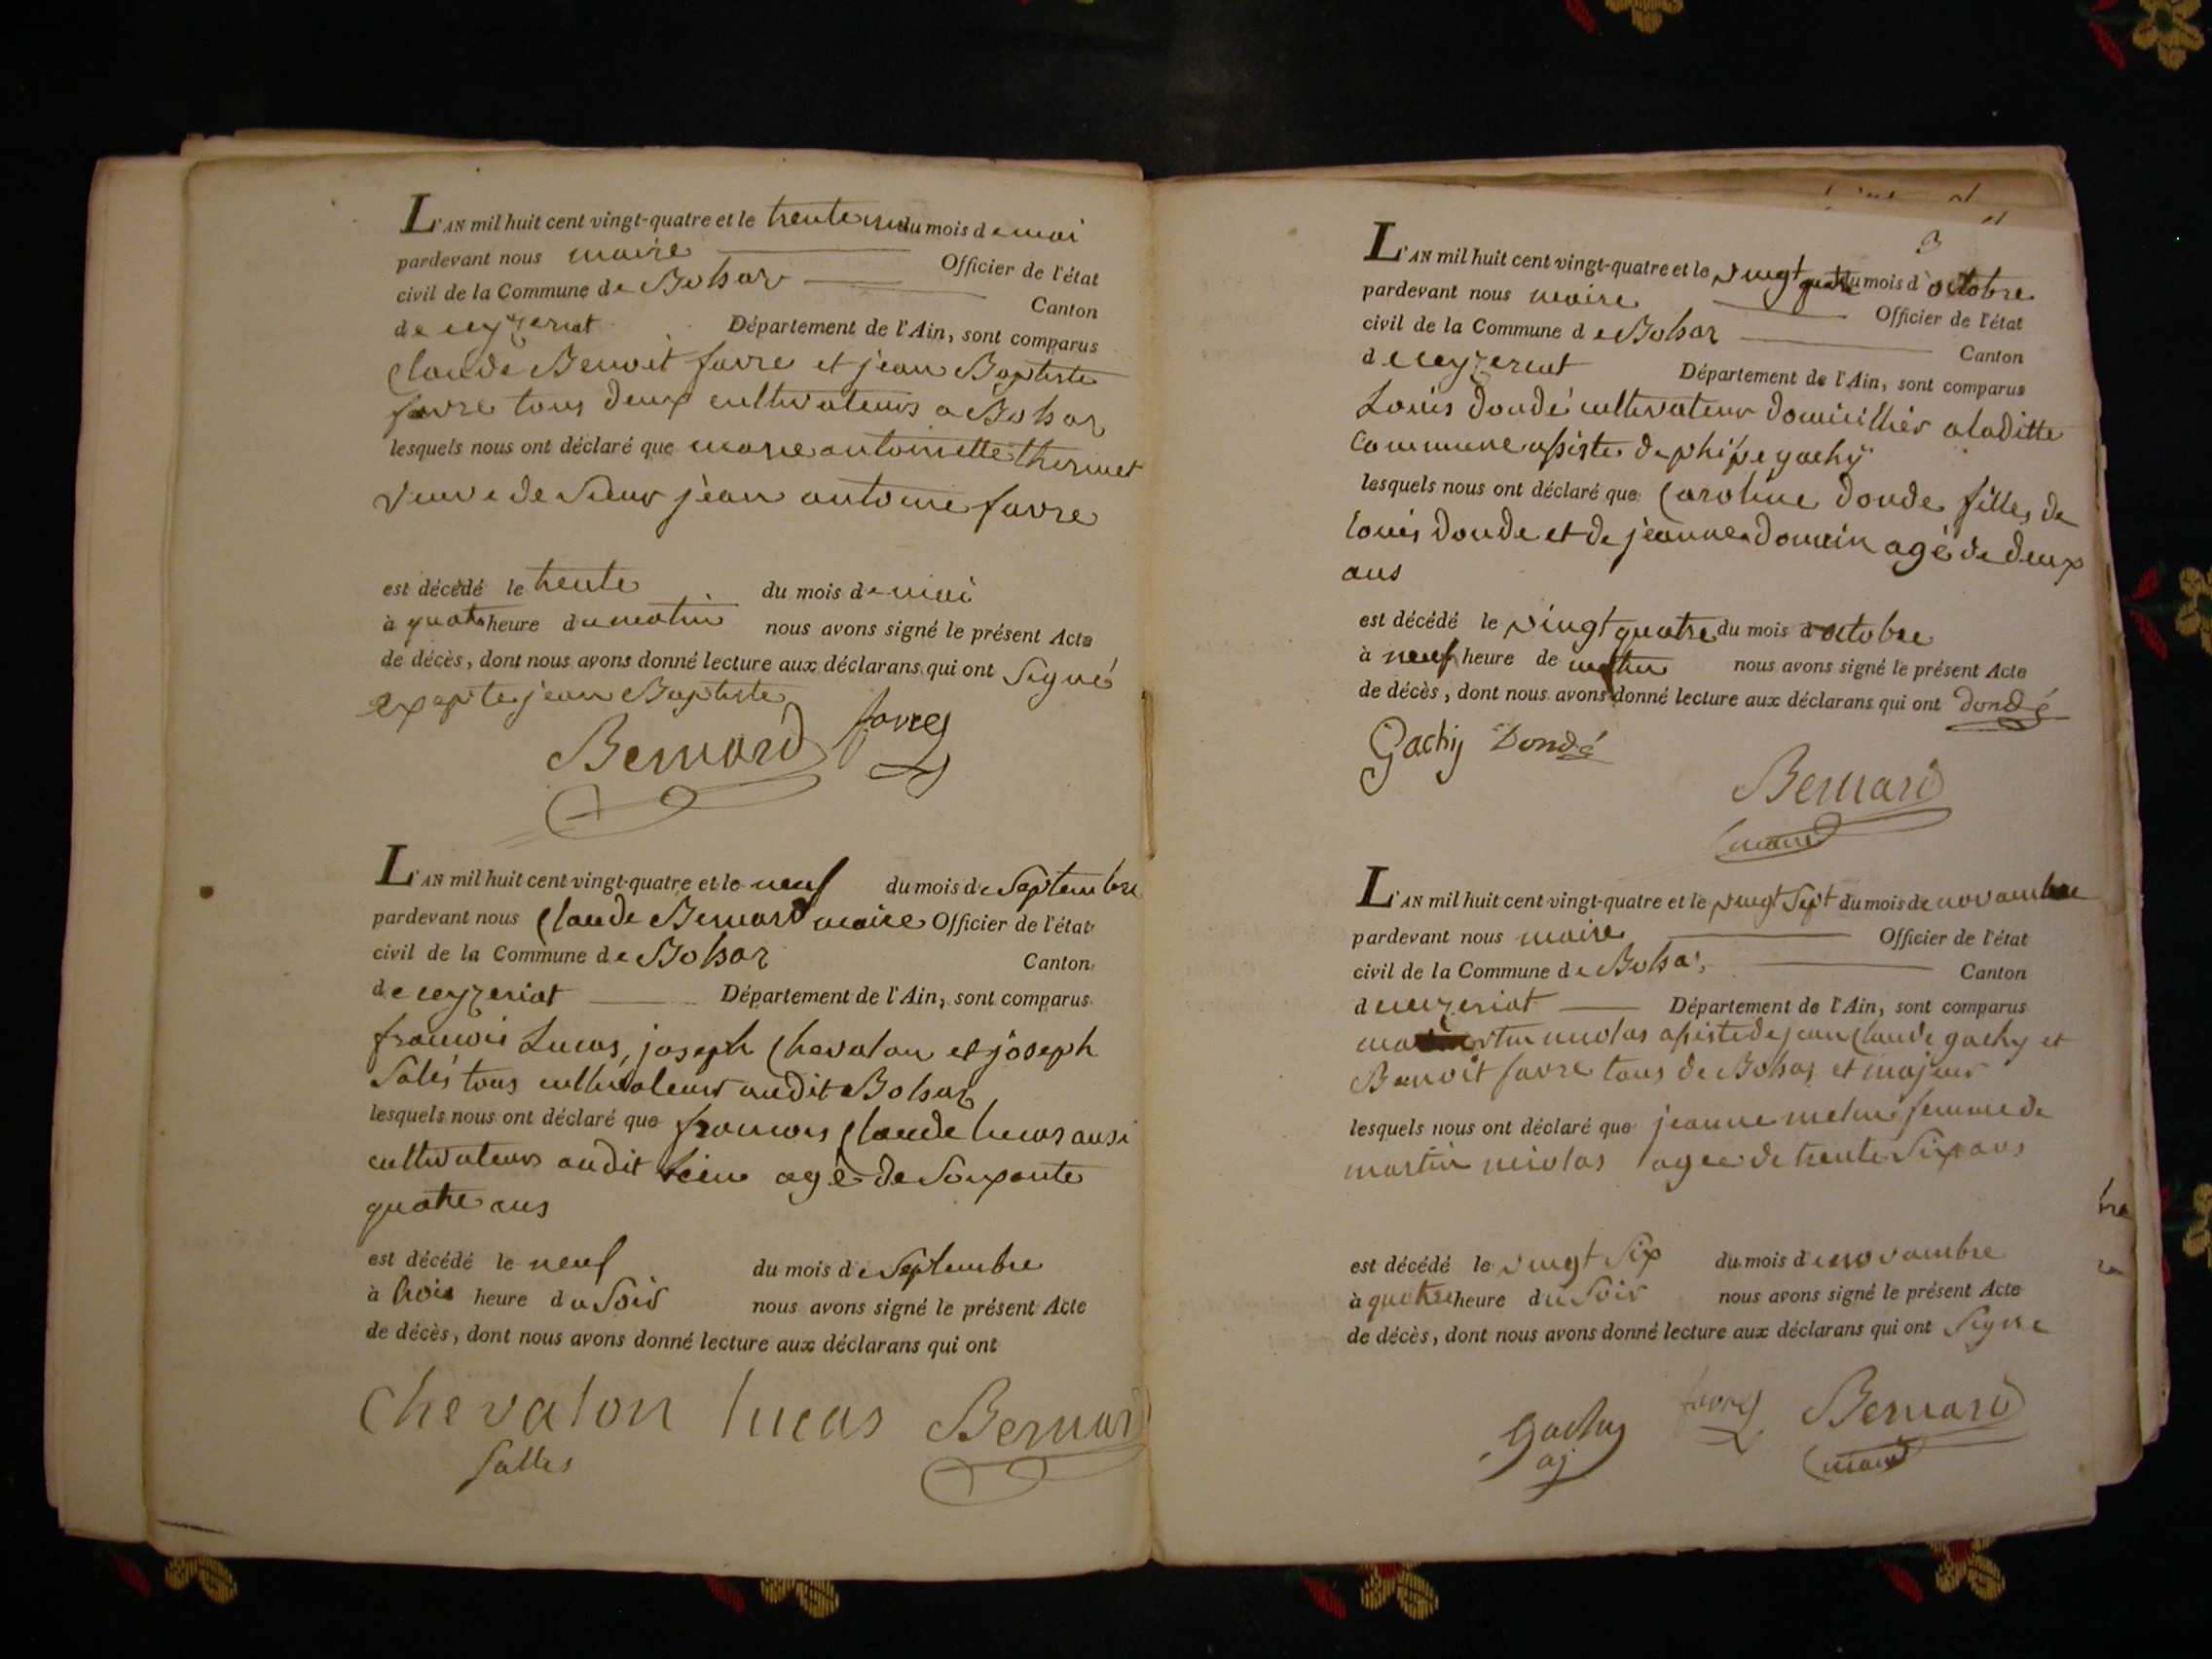 L'AN mil huit cent vingt-quatre et le trente un du mois de mai
pardevant nous maire Officier de l'état
civil de la Commune de Bohas Canton
de ceyzeriat Département de l'Ain, sont comparus
Claude Benoit favre et jean Baptiste
favre tous deux cultivateurs a Bohas
lesquels nous ont déclaré que marie antoinette thermet
veuve de Sieur jean antoine favre
est décédé le trente du mois de mai
à quatre heure du matin nous avons signé le présent Acte
de décès, dont nous avons donné lecture aux déclarans qui ont Signé
jean Baptiste
Bernard favre
L'AN mil huit cent vingt-quatre et le neuf du mois de Septembre
pardevant nous Claude Bernard maire Officier de l'état
civil de la Commune de Bohas Canton
de ceyzeriat Département de l'Ain, sont comparus
francois Lucas, joseph Chevalon et joseph
Salés tous cultivateurs audit Bohas
lesquels nous ont déclaré que francois Claude lucas ausi
cultivateurs audit lieu agé de Soixante
quatre ans
est décédé le neuf du mois de Septembre
à trois heure du Soir nous avons signé le présent Acte
de décès, dont nous avons donné lecture aux déclarans qui ont
Chevalon lucas Bernard
Salles
3
L'AN mil huit cent vingt-quatre et le vingt quatre du mois d'octobre
pardevant nous maire Officier de l'état
civil de la Commune de Bohas Canton
de ceyzeriat Département de l'Ain, sont comparus
Louis dondé cultivateur domicillier a laditte
Commune assiste de gachy
lesquels nous ont déclaré que Caroline Donde filles de
louis donde et de jeanne agé de deux
ans
est décédé le vingt quatre du mois d'octobre
à neuf heure de matin nous avons signé le présent Acte
de décès, dont nous avons donné lecture aux déclarans qui ont dondé
Gachy Dondé
Bernard
maire
L'AN mil huit cent vingt-quatre et le vingt Sept du mois de novambre
pardevant nous maire Officier de l'état
civil de la Commune de Bohas Canton
de ceyzeriat Département de l'Ain, sont comparus
nicolas assiste de jean Claude gachy et
Benoit favre tous de Bohas et majeur
lesquels nous ont déclaré que jeanne femme de
martin nicolas agee de trente Six ans
est décédé le vingt Six du mois de novambre
à quatre heure du Soir nous avons signé le présent Acte
de décès, dont nous avons donné lecture aux déclarans qui ont Signe
Gachy favre Bernard
aj maire